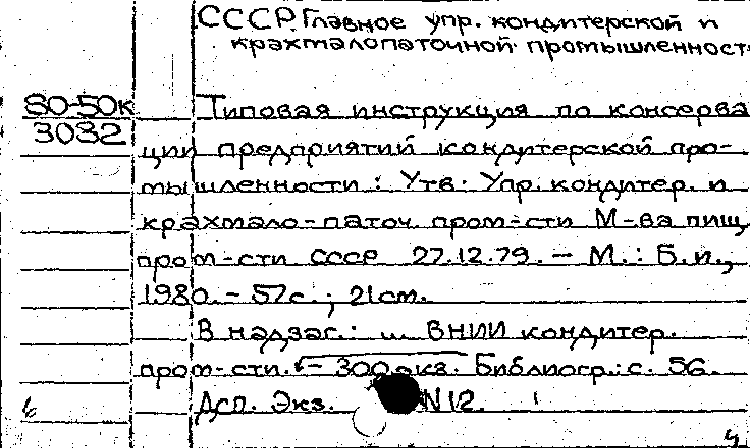 СССР. Главное упр. кондитерской и
крахмалопаточной промышленност
80-50к
3032
Типовая инструкция по консерва
ции предприятий кондитерской про-
мышленности : Утв. Упр. кондитер. и
крахмало-паточ. пром-сти М-ва пищ.
пром-сти СССР 27.12.79. – М. : Б.и.,
1980. – 57с. ; 21см.
В надзаг.: ... ВНИИ кондитер.
пром-сти. – 300 экз. Библиогр.: с. 56.
Дсп. Экз. N12.